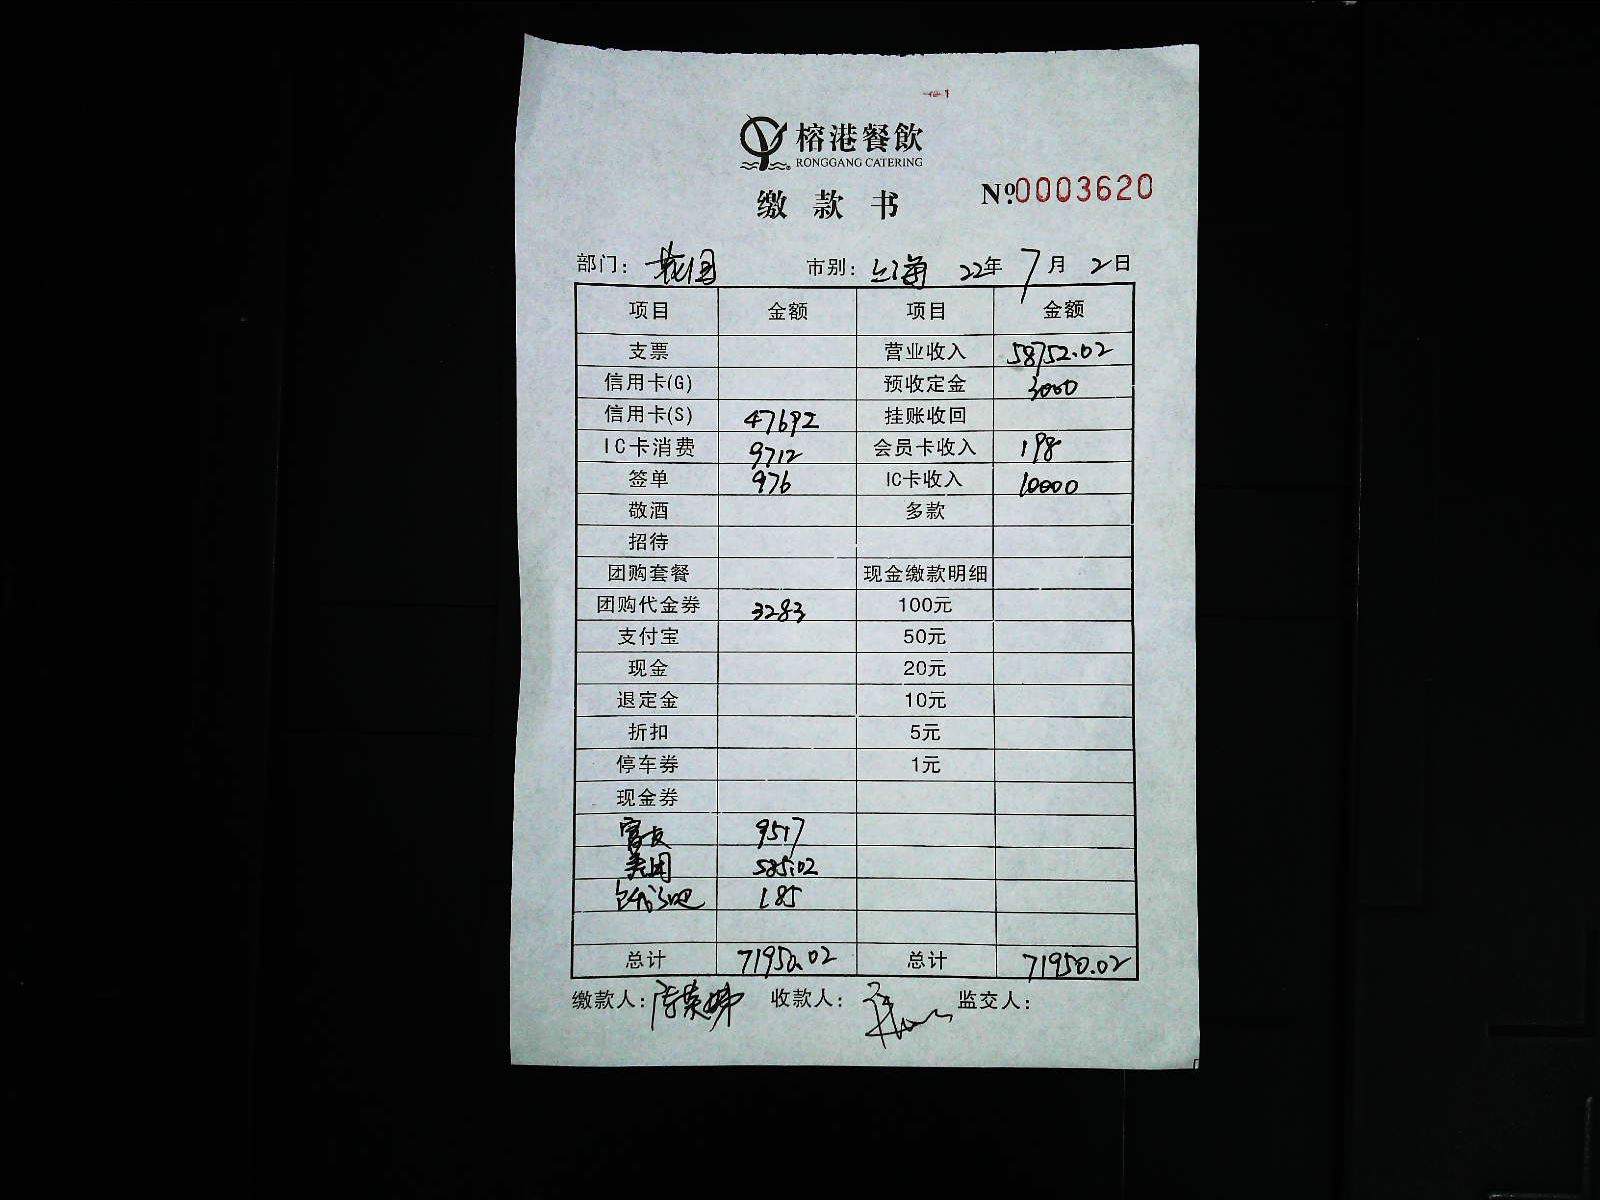 榕港餐飲
RONGGANG CATERING
缴款书 Nº:0003620
部门: 市别: 上海 22年 7月 2日
项目 金额 项目 金额
支票 营业收入 58752.02
信用卡(G) 预收定金 3000
信用卡(S) 47692 挂账收回
IC卡消费 9712 会员卡收入 198
签单 976 IC卡收入 10000
敬酒 多款
招待
团购套餐 现金缴款明细
团购代金券 3283 100元
支付宝 50元
现金 20元
退定金 10元
折扣 5元
停车券 1元
现金券
富友 9517
美团 585.02
185
总计 71950.02 总计 71950.02
缴款人: 收款人: 监交人: